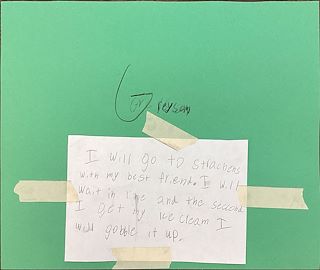 Greyson
I will go to Strachens
with my best friend. I will
wait in line and the second
I get my ice cleam I
will gobble it up.